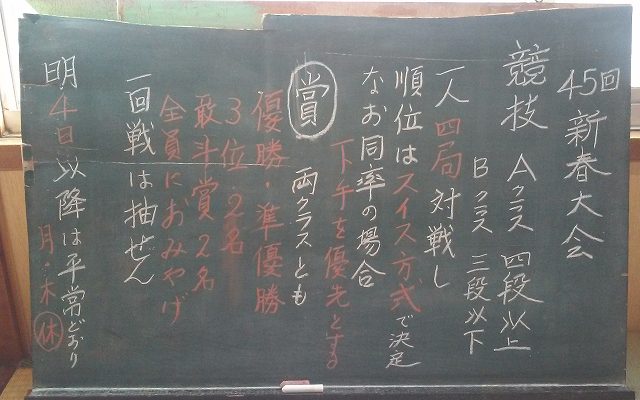 45回 新春大会
競技 Aクラス 四段以上
Bクラス 三段以下
一人 四局 対戦し
順位はスイス方式で決定
なお同率の場合
下手を優先とする
賞 両クラスとも
優勝・準優勝
3位・2名
敢斗賞 2名
全員におみやげ
一回戦は抽せん
明4日以降は平常どおり
月・木 休